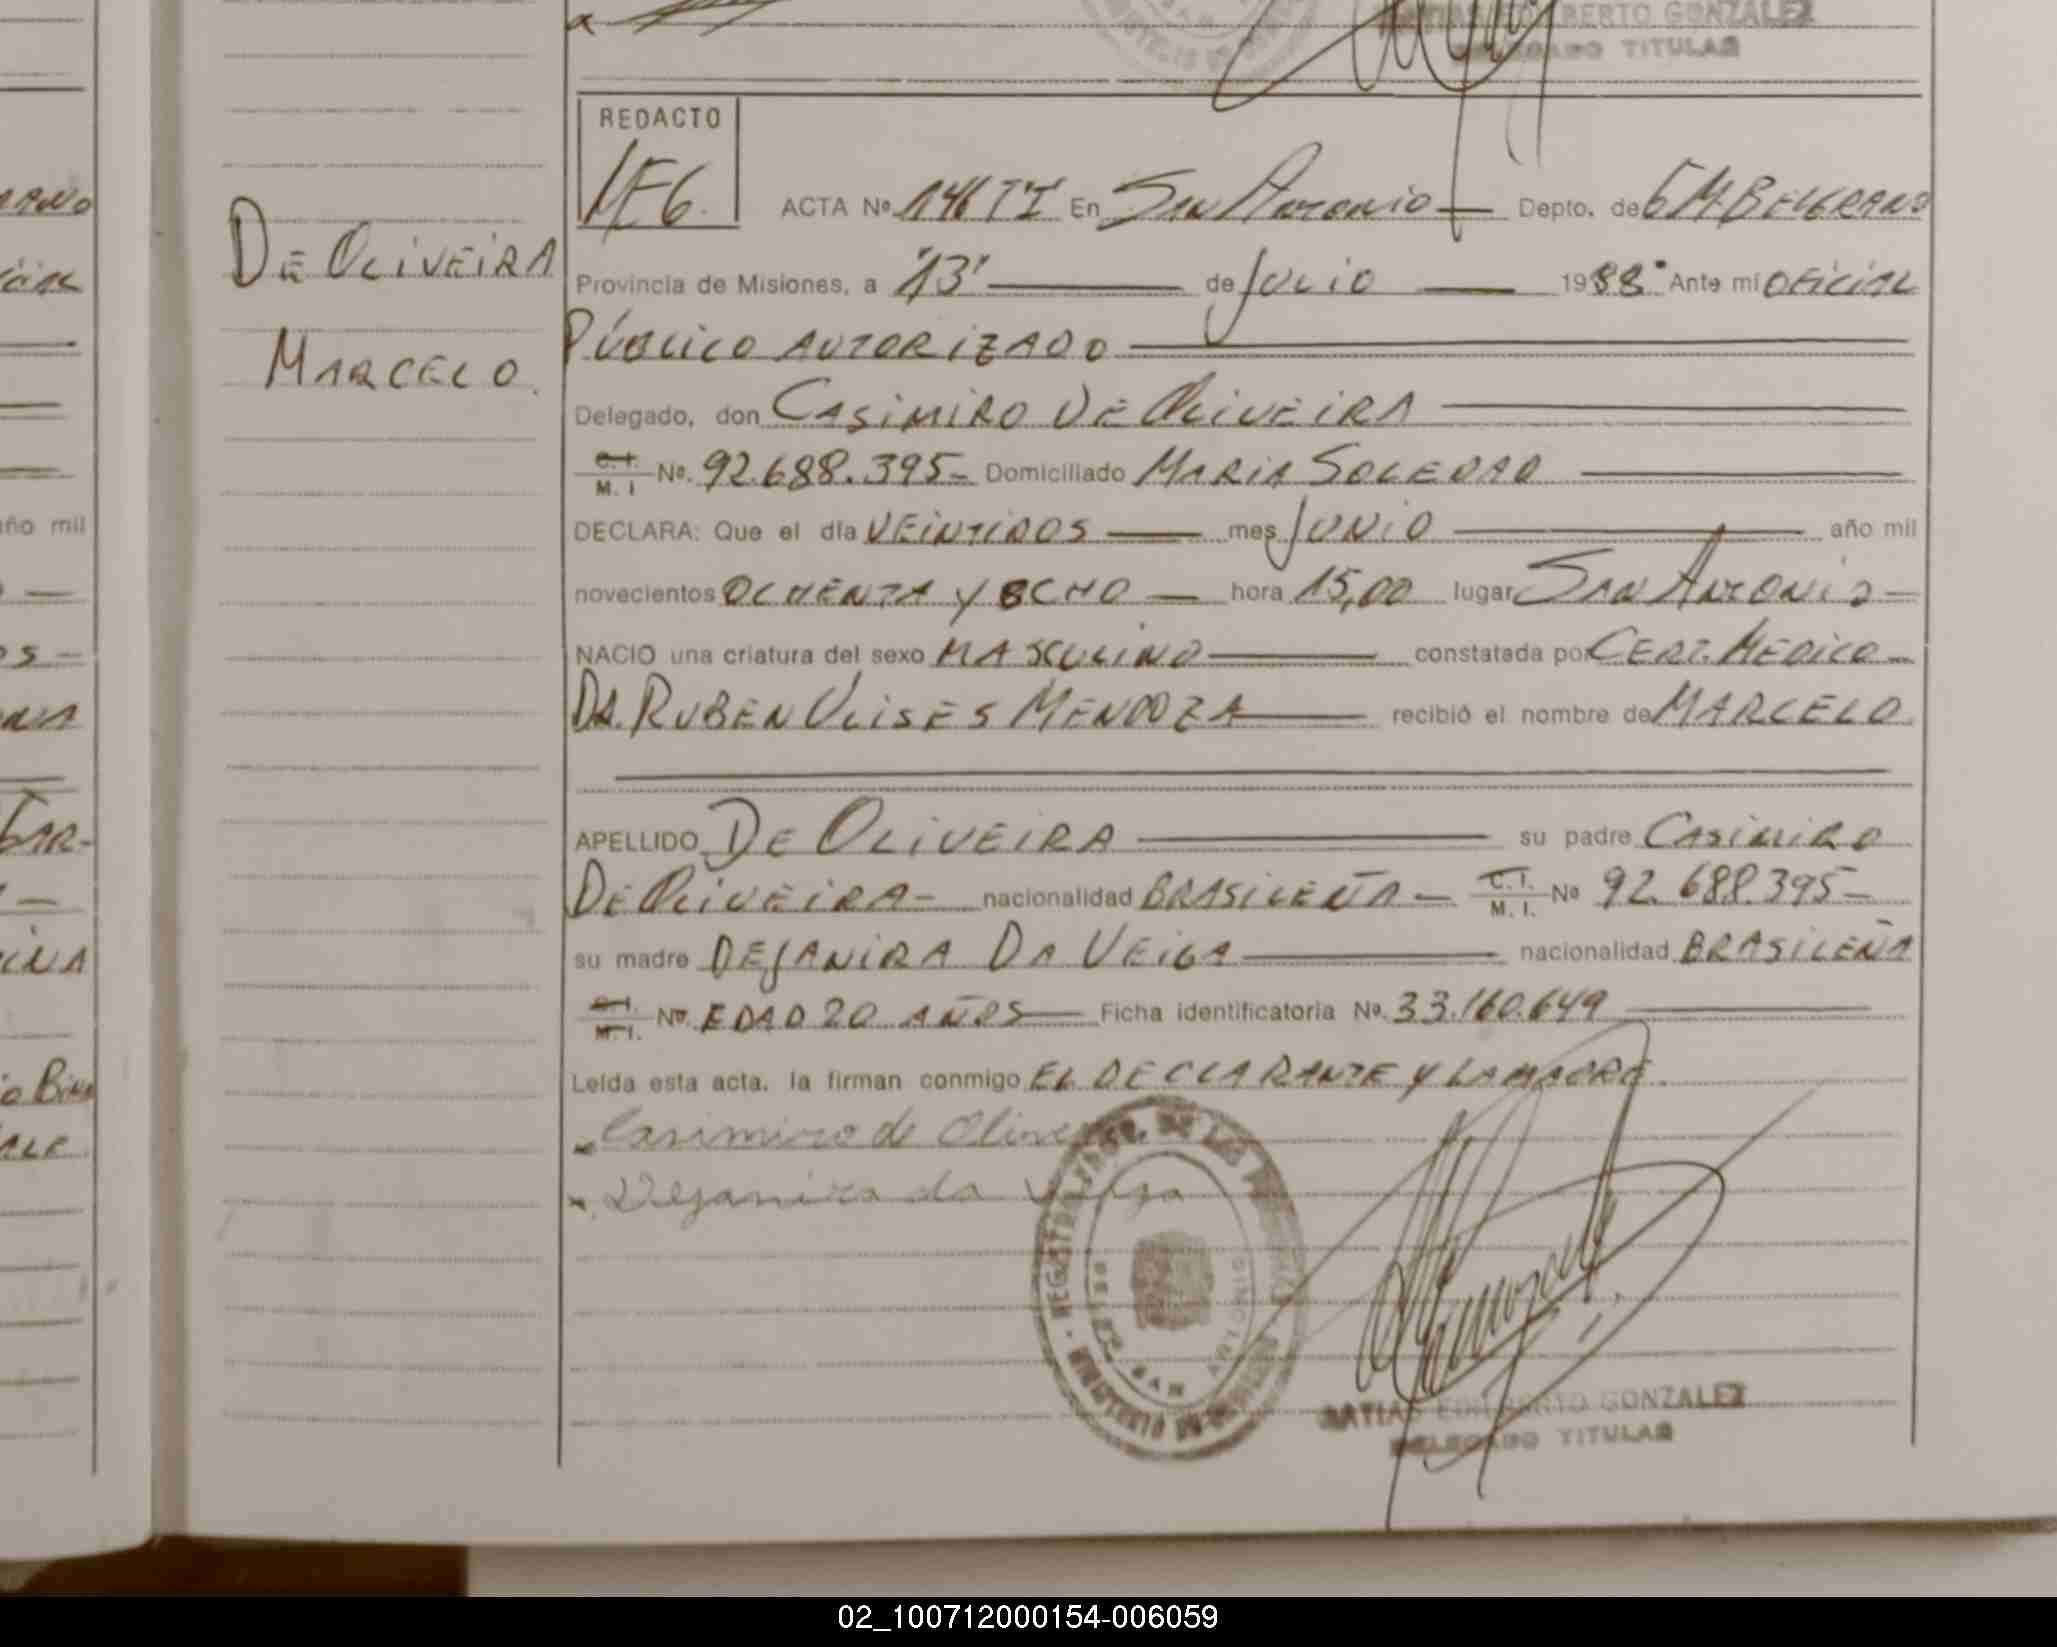 MATIAS EDILBERTO GONZALEZ
DELEGADO TITULAR
REDACTO
ACTA Nº 146 TI En San Antonio Depto. de G M. BELGRANO
Provincia de Misiones, a "13" de Julio 1988. Ante mí OFICIAL
PÚBLICO AUTORIZADO
Delegado, don CASIMIRO DE OLIVEIRA
C. I. M. I Nº. 92.688.395- Domiciliado MARIA SOLEDAD
DECLARA: Que el día VEINTIDOS mes JUNIO año mil
novecientos OCHENTA Y OCHO hora 15,00 lugar SAN ANTONIO
NACIO una criatura del sexo MASCULINO constatada por CERT. MEDICO
DR. RUBEN ULISES MENDOZA recibió el nombre de MARCELO
APELLIDO DE OLIVEIRA su padre CASIMIRO
DE OLIVEIRA nacionalidad BRASILEÑA C. I. M. I. Nº 92.688.395-
su madre DEJANIRA DA VEIGA nacionalidad BRASILEÑA
C. I. M. I. Nº. EDAD 20 AÑOS Ficha identificatoria Nº. 33.160.649
Leída esta acta, la firman conmigo EL DECLARANTE Y LA MADRE.
Casimiro de Olivei
Dejanira da Veiga
MATIAS EDILBERTO GONZALEZ
DELEGADO TITULAR
DE OLIVEIRA
MARCELO.
año mil
02_100712000154-006059